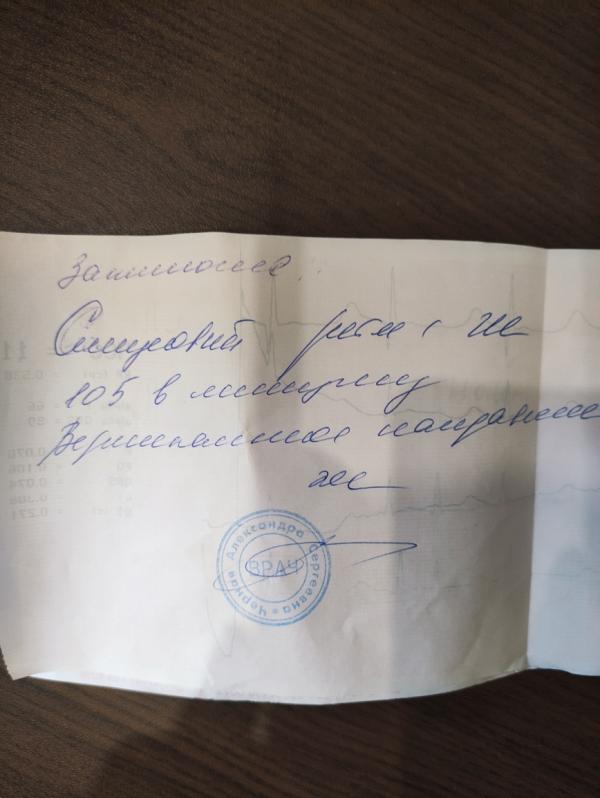 Заключение:
Синусовый ритм с ЧСС
105 в минуту
Вертикальное направление
ЭОС
Черная Александра Сергеевна
ВРАЧ
66
89
0.106
0.074
0.308
0.271